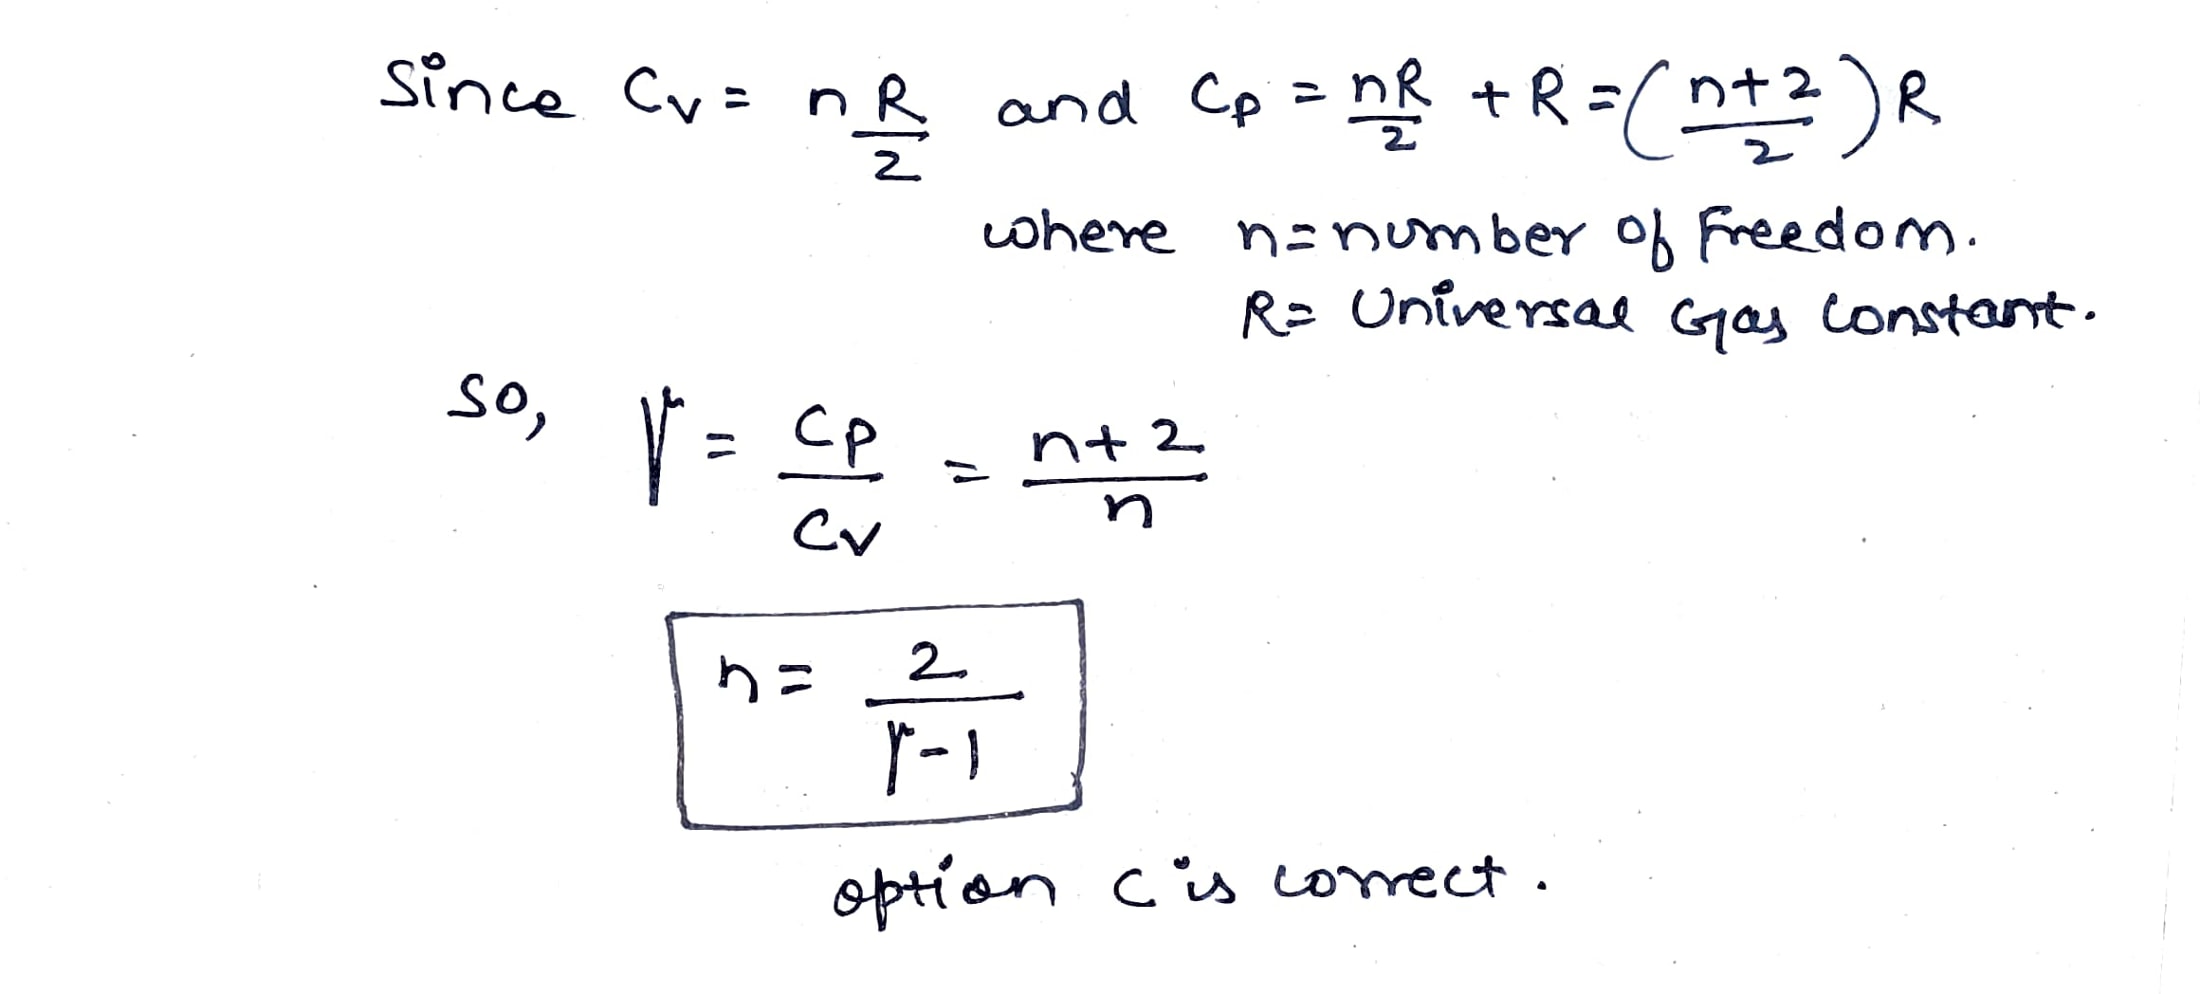 Since Cv = nR/2 and Cp = nR/2 + R = (n+2/2)R
where n = number of Freedom.
R = Universal Gas Constant.
So, γ = Cp/Cv = n+2/n
n = 2/γ-1
option C is correct.